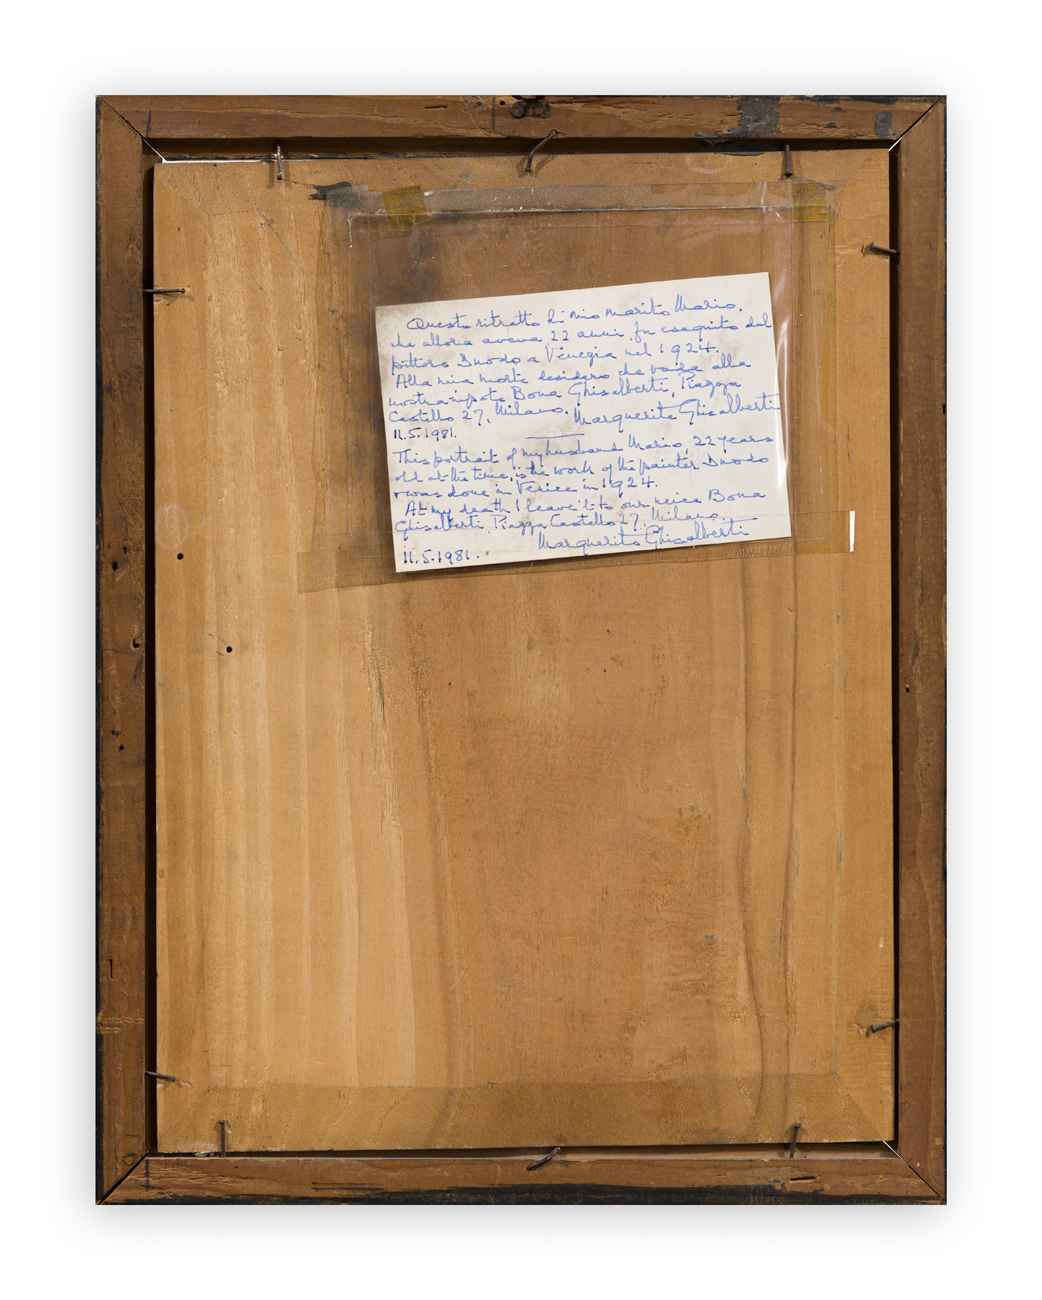 Questo ritratto di mio marito Mario,
che allora aveva 22 anni, fu eseguito dal
pittore Duodo a Venezia nel 1924.
Alla mia morte desidero che vada alla
nostra nipote Bona Ghisalberti, Piazza
Castello 27, Milano. Marguerite Ghisalberti
11.5.1981.
This portrait of my husband Mario, 22 years
old at the time, is the work of the painter Duodo
& was done in Venice in 1924.
At my death I leave it to our neice Bona
Ghisalberti, Piazza Castello 27, Milano.
Marguerite Ghisalberti
11.5.1981.